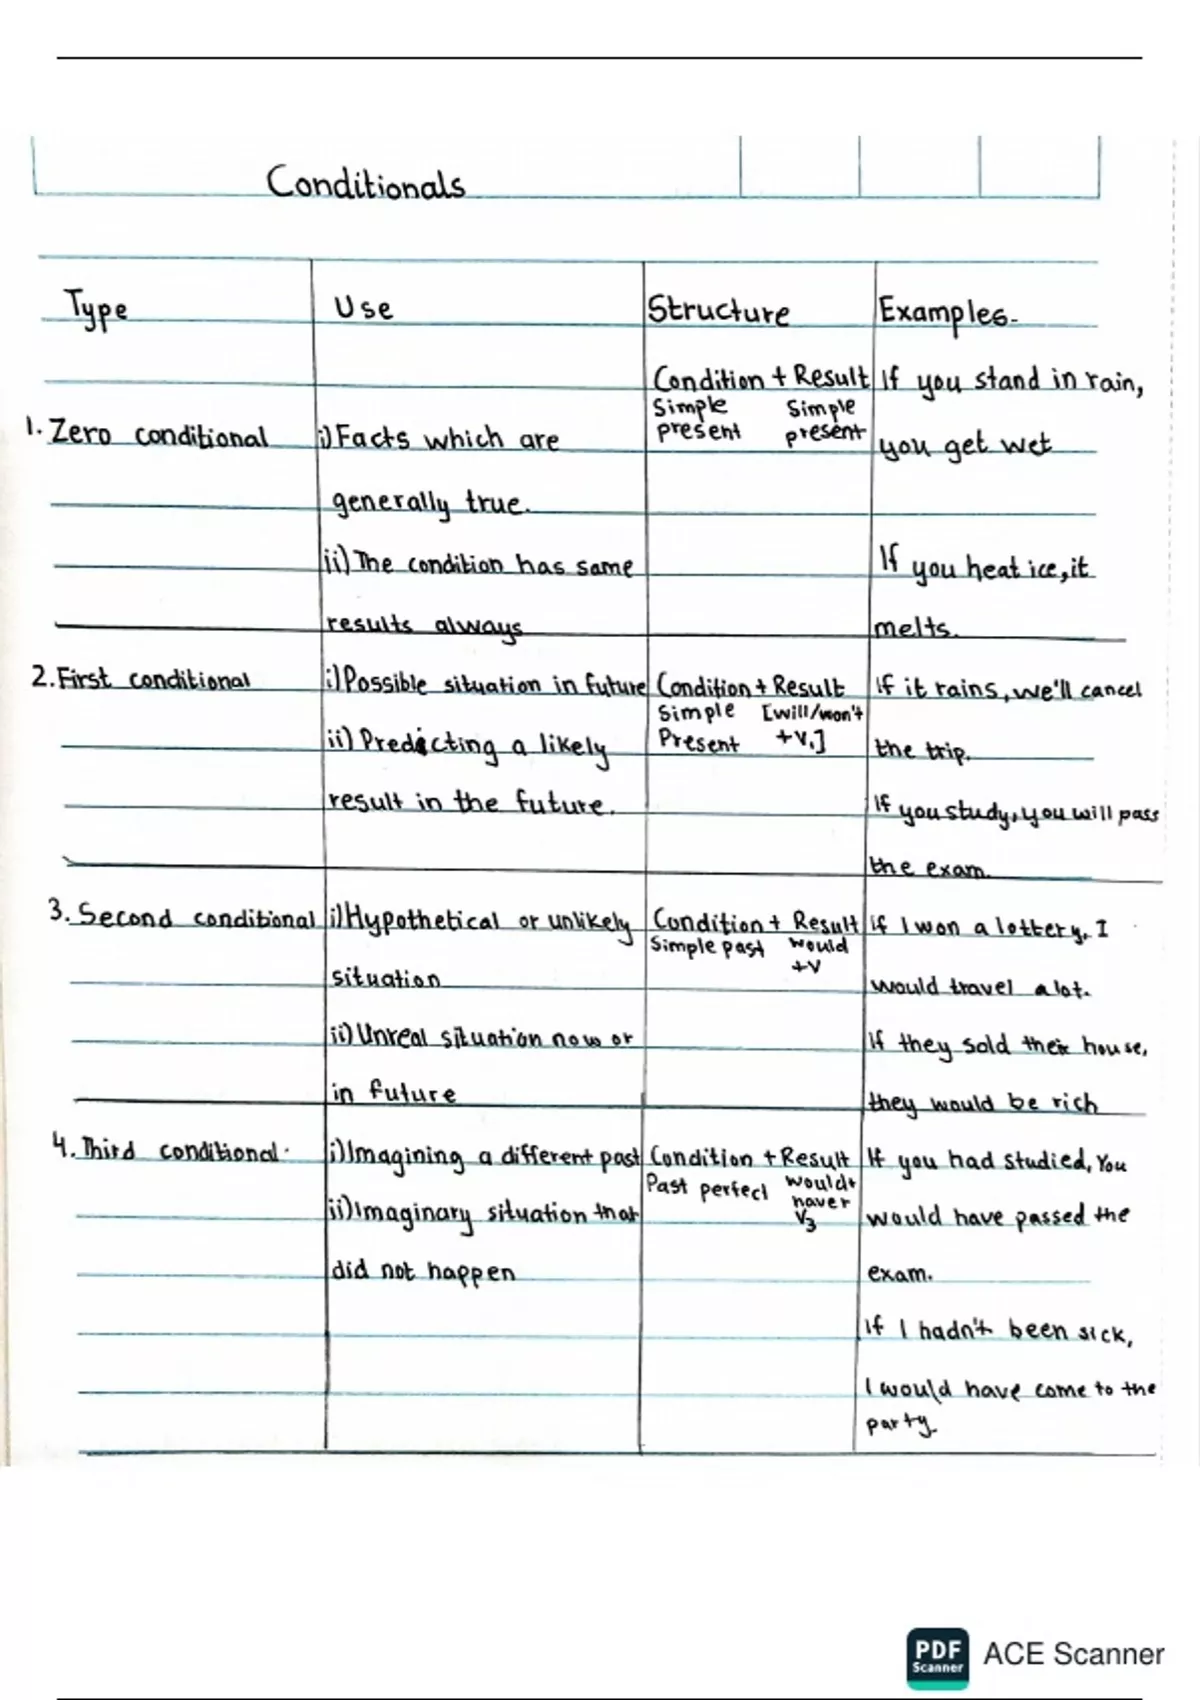 Conditionals
Type
Use
Structure
Examples.
1. Zero conditional
i) Facts which are
generally true.
ii) The condition has same
results always
Condition + Result
Simple present
Simple present
If you stand in rain,
you get wet
If you heat ice, it
melts.
2. First conditional
i) Possible situation in future
ii) Predicting a likely
result in the future.
Condition + Result
Simple Present
[will/won't +V1]
If it rains, we'll cancel
the trip.
If you study, you will pass
the exam.
3. Second conditional
i) Hypothetical or unlikely
situation
ii) Unreal situation now or
in future
Condition + Result
Simple past
would +V
If I won a lottery, I
would travel a lot.
If they sold their house,
they would be rich
4. Third conditional.
i) Imagining a different past
ii) Imaginary situation that
did not happen
Condition + Result
Past perfect
would+
V3
If you had studied, You
would have passed the
exam.
If I hadn't been sick,
I would have come to the
party.
PDF
Scanner
ACE Scanner